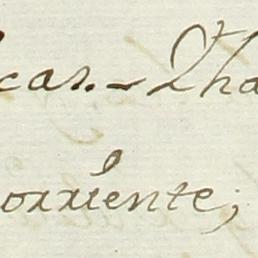 cas. – Qha
orriente;